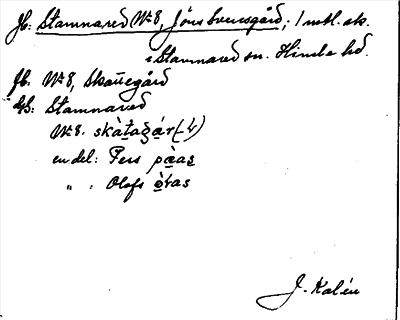 Jb: Stamnared Nr 8, Jöns Svensgård; 1 mtl. sk.
i Stamnared sn. Himle hd.
Jb. Nr 8, Skattegård
Us: Stamnared
Nr 8. skàtagár(-r)
en del: Pers pàas
" : Olofs òlas
J. Kalén